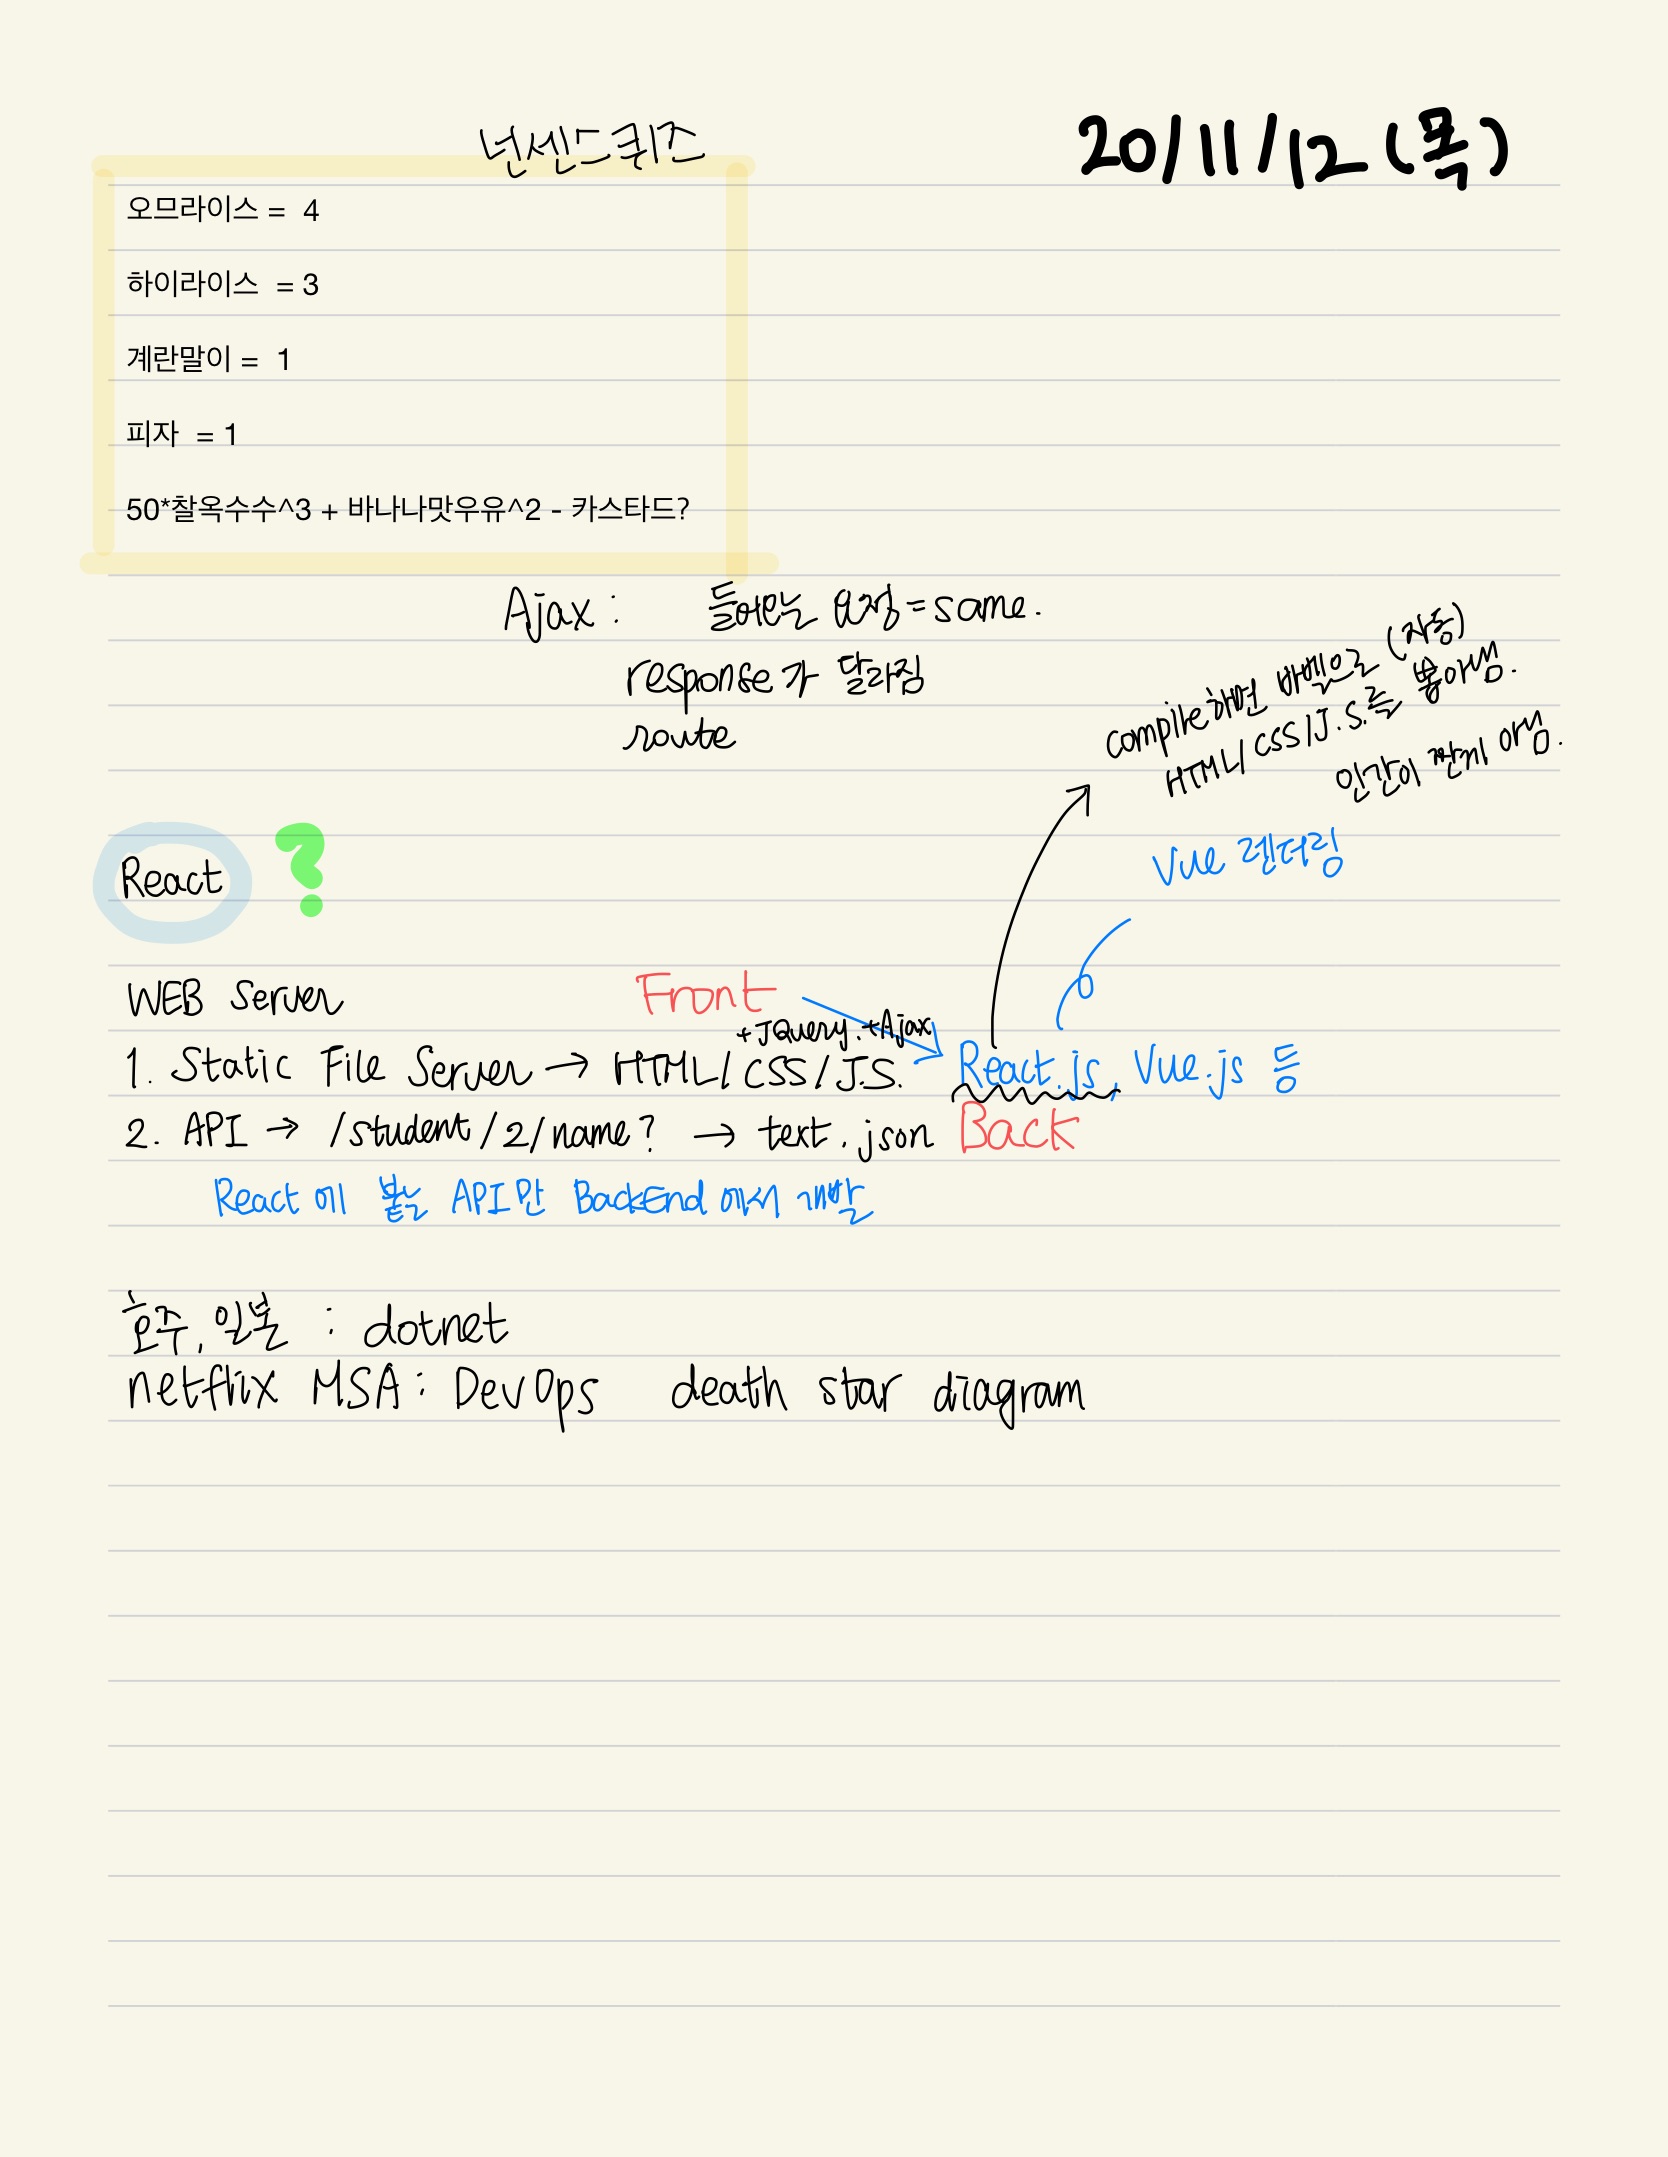 넌센스퀴즈
20/11/12 (목)
오므라이스 =  4
하이라이스  = 3
계란말이 =  1
피자  = 1
50*찰옥수수^3 + 바나나맛우유^2 - 카스타드?
Ajax :  들어오는 요청 = same.
response가 달라짐
route
compile하면 바벨으로 (자동)
HTML/CSS/J.S.를 뽑아냄.
인간이 짠게 아님.
Vue 렌더링
React ?
WEB Server
Front
+JQuery. +Ajax
1. Static File Server → HTML/CSS/J.S. React.js, Vue.js 등
2. API → /student/2/name? → text. json Back
React에 붙는 API만 BackEnd에서 개발
호주, 일본 : dotnet
netflix MSA : DevOps  death star diagram